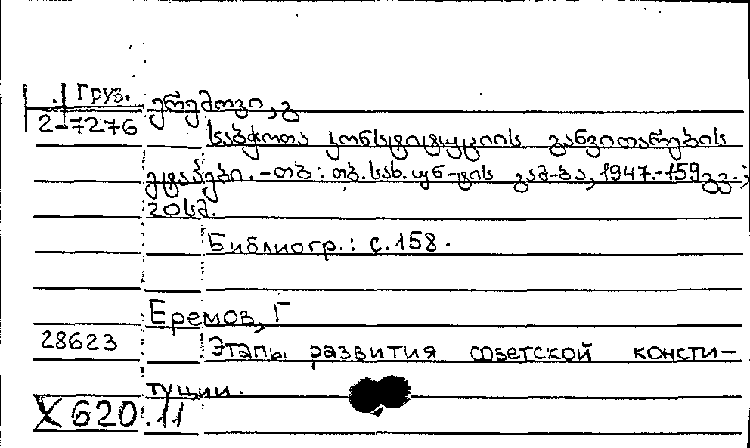 Груз. ერემოვი, გ
2-7276
საბჭოთა კონსტიტუციის განვითარების
ეტაპები. -თბ: თბ. სახ. უნ-ტის გამ-ბა, 1947.-159გვ.;
20სმ.
Библиогр.: с.158.
Еремов, Г
28623 Этапы развития советской консти-
туции.
X 620.11